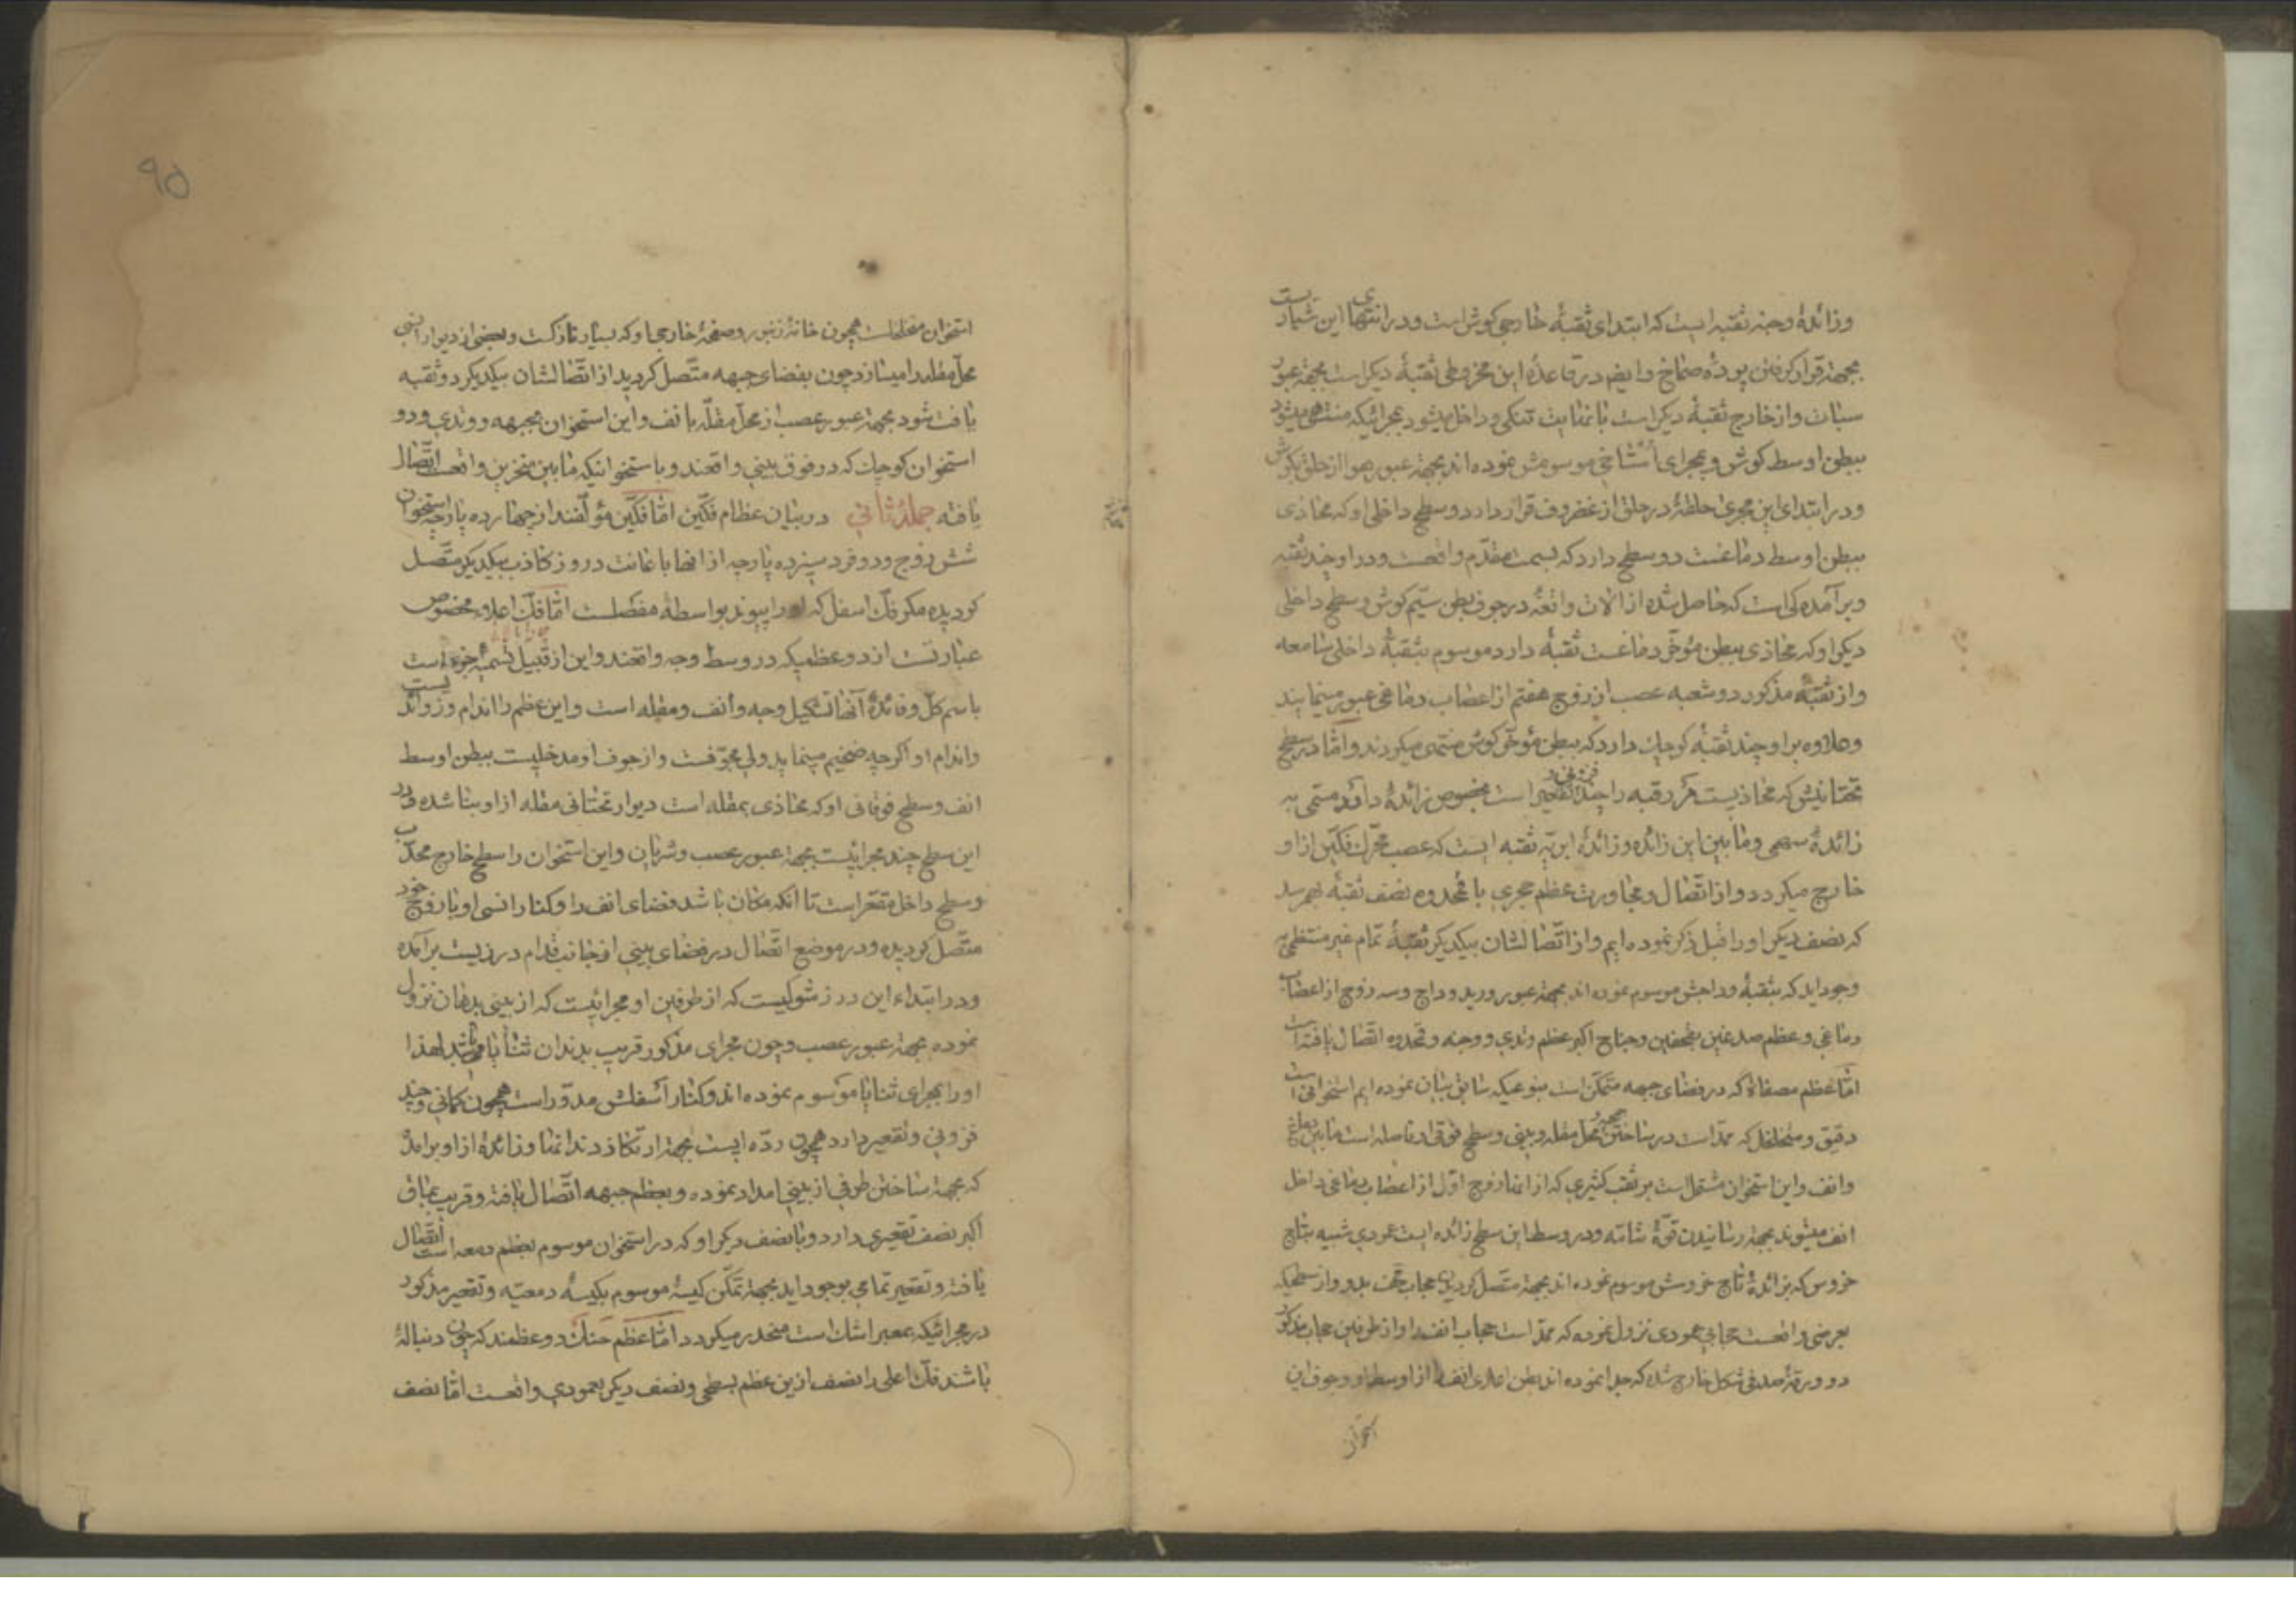 وزائدهٔ وجنه ثقبه ایست که ابتدای ثقبهٔ خارجی کوش است ودر انتهای این شیاریست
بجهة قرار کرفتن پردهٔ صماخ وایضم در قاعدهٔ این مخروطی ثقبهٔ دیکر است بجهة عبور
سبات واز خارج ثقبهٔ دیکر است با نهایت تنکی وداخل میشود بمجرائیکه منتهی میشود
ببطن اوسط کوش وبمجرای استاخی موسومش نموده اند بجهة عبور هوا از حلق بکوش
ودر ابتدای این مجری حلقهٔ در حلق از غضروف قرار دارد وسطح داخلی او که محاذی
ببطن اوسط دماغست دو سطح دارد که بسمت مقدّم واقعست ودر او چند ثقبه
وبرآمده کی است که حاصل شده از الات واقعهٔ در جوف بطن سیّم کوش وسطح داخلی
دیکر او که محاذی ببطن مؤخّر دماغست ثقبهٔ دارد موسوم بثقبهٔ داخلی سامعه
واز ثقبهٔ مذکور دو شعبه عصب از زوج هفتم از اعصاب دماغی عبور مینمایند
وعلاوه بر او چند ثقبهٔ کوچك دارد که ببطن مؤخّر کوش منتهی میکردند وامّا در سطح
تحتانیش که محاذیست مر رقبه را چند فزونی و تقعیر است بخصوص زائدهٔ دارد مسمّی به
زائدهٔ سهمی وما بین این زائده وزائدهٔ ابریّه ثقبه ایست که عصب محرّك فکّین از او
خارج میکردد واز اتّصال ومجاورت عظم حجری با قمحدوه نصف ثقبهٔ بهم رسد
که نصف دیکر اورا قبل ذکر نموده ایم واز اتّصالشان بیکدیکر ثقبهٔ تمام غیر منتظمی به
وجود اید که بثقبهٔ وداجش موسوم نموده اند بجهة عبور ورید وداج وسه زوج از اعصاب
دماغی وعظم صدغین بقحفین وجناح اکبر عظم وتدی ووجنه وقمحدوه اتّصال یافته است
امّا عظم مصفاة که در فضای جبهه متمکّن است بنوعیکه سابق بیان نموده ایم استخوانی است
دقیق ومتخلخل که ممدّ است در ساختن محل مقله وبینی وسطح فوقی او فاصله است ما بین دماغ
وانف واین استخوان مشتمل است بر ثقب کثیری که از انها زوج اوّل از اعصاب دماغی داخل
انف میشوند بجهة رسانیدن قوّهٔ شامّه ودر وسط این سطح زائده ایست عمودی شبیه بتاج
خروس که بزائدهٔ تاج خروسش موسوم نموده اند بجهة متّصل کردیدن حجاب قحف بدو واز سطحیکه
بعرضی واقعست حجابی عمودی نزول نموده که ممدّ است حجاب انف را واز طرفین حجاب مذکور
دو ورقهٔ صدفی شکل خارج شده که جدا نموده اند بطن اعلای انف را از اوسط او وجوف این
استخوان
۹۵
استخوان متخلخلست همچون خانهٔ زنبور وصفحهٔ خارجی او که بسیار نازکست وبعضی از دیوار انسی
محل مقله را میسازد چون بفضای جبهه متّصل کردید از اتّصالشان بیکدیکر دو ثقبه
یافت شود بجهة عبور عصب از محل مقله بانف واین استخوان بجبهه ووتدی ودو
استخوان کوچك که در فوق بینی واقعند وباستخوانیکه ما بین منخرین واقعست اتّصال
یافته جملهٔ ثانی در بیان عظام فکّین امّا فکّین مؤلّفند از چهارده پارچه استخوان
شش زوج ودو فرد سیزده پارچه از انها باعانت دروز کاذب بیکدیکر متّصل
کردیده مکر فك اسفل که اورا پیوند بواسطهٔ مفصلست امّا فك اعلا بخصوص
عبارتست از دو عظمیکه در وسط وجه واقعند واین از قبیل تسمیهٔ جزء است
باسم کل وفائدهٔ آنها تشکیل وجه وأنف ومقله است واین عظم را اندام وزوائدیست
واندام او اکرچه ضخیم مینماید ولی مجوّفست واز جوف او مدخلیست ببطن اوسط
انف وسطح فوقانی او که محاذی بمقله است دیوار تحتانی مقله از او بنا شده ودر
این سطح چند مجرائیست بجهة عبور عصب وشریان واین استخوان را سطح خارج محدّب
وسطح داخل مقعّر است تا انکه مکان باشد فضای انف را وکنار انسی او با زوج خود
متّصل کردیده ودر موضع اتّصال در فضای بینی از جانب قدام درزیست برآمده
ودر ابتداء این درز شوکیست که از طرفین او مجرائیست که از بینی بدهان نزول
نموده بجهة عبور عصب وچون مجرای مذکور قریب بدندان ثنایا میباشد لهذا
اورا بمجرای ثنایا موسوم نموده اند وکنار أسفلش مدوّر است همچون کمانی وچند
فزونی وتقعیر دارد همچون ردّه ایست بجهة ارتکاز دندانها وزائدهٔ از او برآمده
که بجهة ساختن طرفی از بینی امداد نموده وبعظم جبهه اتّصال یافته وقریب بمأق
اکبر نصف تقعیری دارد وبا نصف دیکر او که در استخوان موسوم بعظم دمعه است اتّصال
یافته وتقعیر تمامی بوجود اید بجهة تمکّن کیسهٔ موسوم بکیسهٔ دمعیّه وتقعیر مذکور
در مجرائیکه بمعبر اشك است منحدر میکردد امّا عظم حنك دو عظمند که چون دنبالهٔ
باشند فك اعلی را نصف ازین عظم بسطحی ونصف دیکر بعمودی واقعست امّا نصف